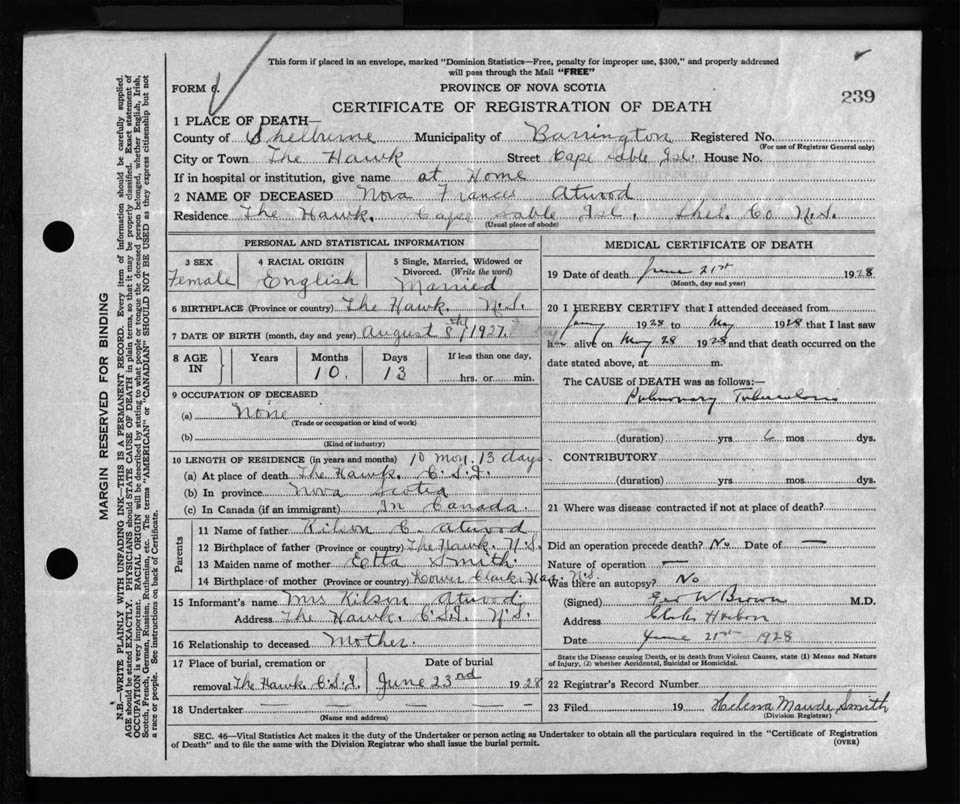 This form if placed in an envelope, marked "Dominion Statistics—Free, penalty for improper use, $300," and properly addressed
will pass through the Mail "FREE"
FORM
PROVINCE OF NOVA SCOTIA
239
CERTIFICATE OF REGISTRATION OF DEATH
1 PLACE OF DEATH—
County of Shelburne Municipality of Barrington Registered No.
(For use of Registrar General only)
City or Town The Hawk Street Cape Sable Isl. House No.
If in hospital or institution, give name at Home
2 NAME OF DECEASED Nova Frances Atwood
Residence The Hawk. Cape Sable Isl. Shel. Co N.S.
(Usual place of abode)
PERSONAL AND STATISTICAL INFORMATION
3 SEX
Female
4 RACIAL ORIGIN
English
5 Single, Married, Widowed or
Divorced. (Write the word)
Married
6 BIRTHPLACE (Province or country) The Hawk. N.S.
7 DATE OF BIRTH (month, day and year) August 8th 1927.
8 AGE
IN
Years
Months
10.
Days
13
If less than one day,
hrs. or min.
9 OCCUPATION OF DECEASED
(a) None
(Trade or occupation or kind of work)
(b)
(Kind of industry)
10 LENGTH OF RESIDENCE (in years and months) 10 mon. 13 days.
(a) At place of death The Hawk. C.S.I.
(b) In province Nova Scotia
(c) In Canada (if an immigrant) In Canada.
Parents
11 Name of father Kilson C. Atwood
12 Birthplace of father (Province or country) The Hawk. N.S.
13 Maiden name of mother Etta Smith.
14 Birthplace of mother (Province or country) Lower Clarks Har. N.S.
15 Informant's name Mrs Kilson Atwood.
Address The Hawk. C.S.I. N.S.
16 Relationship to deceased Mother.
17 Place of burial, cremation or
removal The Hawk. C.S.I.
Date of burial
June 23rd 1928
18 Undertaker
(Name and address)
MEDICAL CERTIFICATE OF DEATH
19 Date of death June 21st 1928
(Month, day and year)
20 I HEREBY CERTIFY that I attended deceased from
1928 to May 1928 that I last saw
her alive on May 28 1928 and that death occurred on the
date stated above, at m.
The CAUSE OF DEATH was as follows:—
Pulmonary Tuberculosis
(duration) yrs 6 mos dys.
CONTRIBUTORY
(duration) yrs. mos. dys.
21 Where was disease contracted if not at place of death?
Did an operation precede death? No Date of —
Nature of operation —
Was there an autopsy? No
(Signed) Geo W Brown M.D.
Address Clarks Harbor
Date June 21st 1928
State the Disease causing Death, or in death from Violent Causes, state (1) Means and Nature
of Injury, (2) whether Accidental, Suicidal or Homicidal.
22 Registrar's Record Number
23 Filed 19 Helena Maude Smith
(Division Registrar)
SEC. 46—Vital Statistics Act makes it the duty of the Undertaker or person acting as Undertaker to obtain all the particulars required in the "Certificate of Registration
of Death" and to file the same with the Division Registrar who shall issue the burial permit.
(OVER)
MARGIN RESERVED FOR BINDING
N.B.—WRITE PLAINLY WITH UNFADING INK—THIS IS A PERMANENT RECORD. Every item of information should be carefully supplied.
AGE should be stated EXACTLY. PHYSICIANS should STATE CAUSE OF DEATH in plain terms, so that it may be properly classified. Exact statement of
OCCUPATION is very important. RACIAL ORIGIN will be described by stating to what people or tongue the deceased person belonged, whether English, Irish,
Scotch, French, German, Russian, Ruthenian, etc. The terms "AMERICAN" or "CANADIAN" SHOULD NOT BE USED as they express citizenship but not
a race or people. See instructions on back of Certificate.